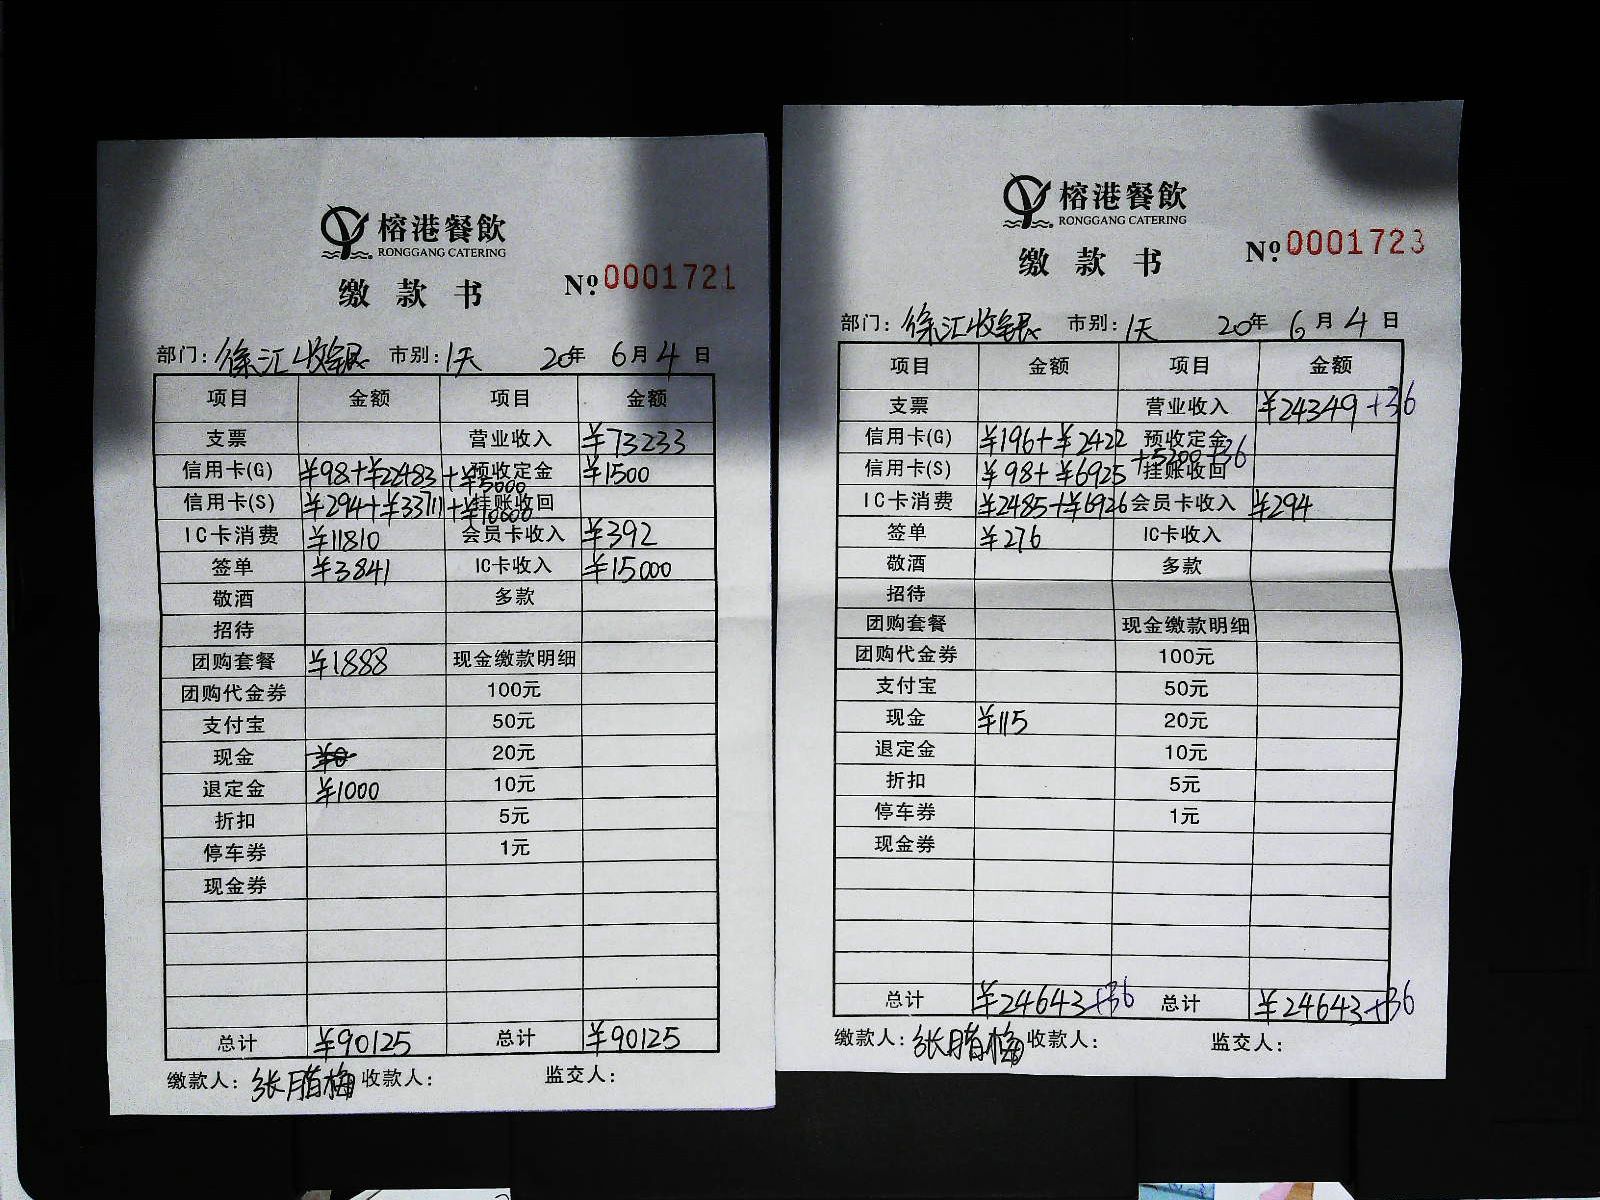 榕港餐飲
RONGGANG CATERING
缴款书
№ 0001721
部门: 徐汇收银 市别: 1天 20年 6月 4日
项目 金额 项目 金额
支票 营业收入 ¥73233
信用卡(G) ¥98+¥22483+¥5000 预收定金 ¥1500
信用卡(S) ¥294+¥33711+¥10000 挂账收回
IC卡消费 ¥11810 会员卡收入 ¥392
签单 ¥3841 IC卡收入 ¥15000
敬酒 多款
招待
团购套餐 ¥1888 现金缴款明细
团购代金券 100元
支付宝 50元
现金 ¥0 20元
退定金 ¥1000 10元
折扣 5元
停车券 1元
现金券
总计 ¥90125 总计 ¥90125
缴款人: 张腊梅 收款人: 监交人:
榕港餐飲
RONGGANG CATERING
缴款书
№ 0001723
部门: 徐汇收银 市别: 1天 20年 6月 4日
项目 金额 项目 金额
支票 营业收入 ¥24349+36
信用卡(G) ¥196+¥2422 预收定金
信用卡(S) ¥98+¥6925+5200+36 挂账收回
IC卡消费 ¥2485+¥6926 会员卡收入 ¥294
签单 ¥276 IC卡收入
敬酒 多款
招待
团购套餐 现金缴款明细
团购代金券 100元
支付宝 50元
现金 ¥115 20元
退定金 10元
折扣 5元
停车券 1元
现金券
总计 ¥24643+36 总计 ¥24643+36
缴款人: 张腊梅 收款人: 监交人: